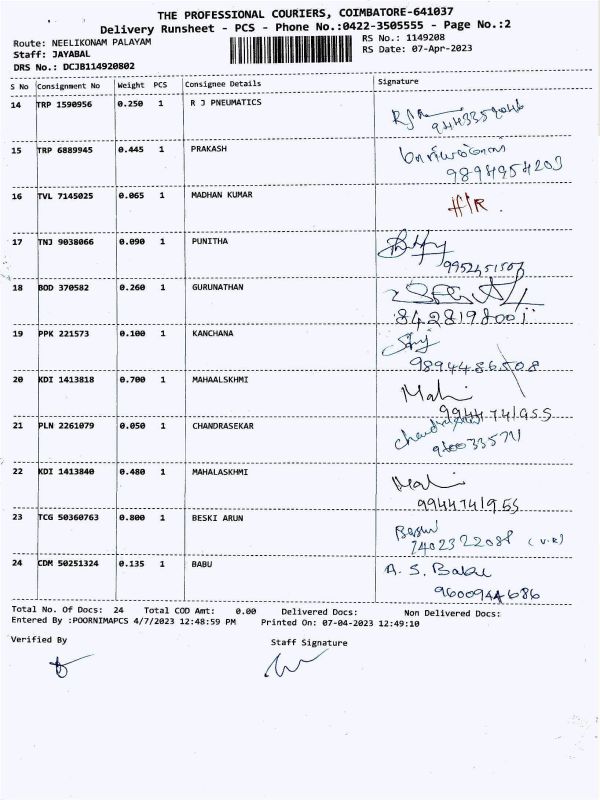 THE PROFESSIONAL COURIERS, COIMBATORE-641037
Delivery Runsheet - PCS - Phone No.:0422-3505555 - Page No.:2
Route: NEELIKONAM PALAYAM RS No.: 1149208
Staff: JAYABAL RS Date: 07-Apr-2023
DRS No.: DCJB114920802
S No Consignment No Weight PCS Consignee Details Signature
14 TRP 1590956 0.250 1 R J PNEUMATICS
15 TRP 6889945 0.445 1 PRAKASH
9894954203
16 TVL 7145025 0.065 1 MADHAN KUMAR
17 TNJ 9038066 0.090 1 PUNITHA
9952451507
18 BOD 370582 0.260 1 GURUNATHAN
8428198001
19 PPK 221573 0.100 1 KANCHANA
9894486508
20 KDI 1413818 0.700 1 MAHAALSKHMI Mahi
9944741955
21 PLN 2261079 0.050 1 CHANDRASEKAR
22 KDI 1413840 0.480 1 MAHALASKHMI
9944741955
23 TCG 50360763 0.800 1 BESKI ARUN
7402322088 (V.R)
24 CDM 50251324 0.135 1 BABU A. S. Babu
9600944686
Total No. Of Docs: 24 Total COD Amt: 0.00 Delivered Docs: Non Delivered Docs:
Entered By :POORNIMAPCS 4/7/2023 12:48:59 PM Printed On: 07-04-2023 12:49:10
Verified By Staff Signature